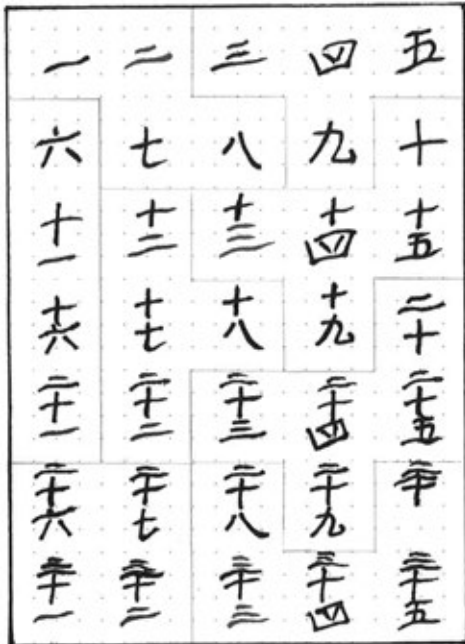 一 二 三 四 五
六 七 八 九 十
十一 十二 十三 十四 十五
十六 十七 十八 十九 二十
二十一 二十二 二十三 二十四 二七五
二十六 二十七 二十八 二十九 三十
三十一 三十二 三十三 三十四 三十五